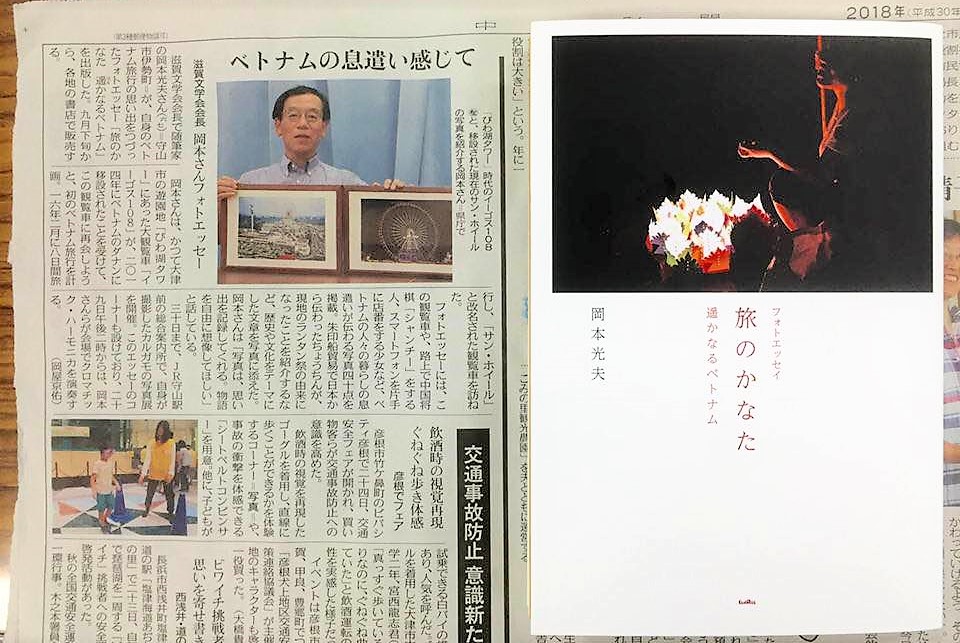 2018年(平成30年
中
(第3種郵便物認可)
ベトナムの息遣い感じて
滋賀文学会長 岡本さんフォトエッセー
「びわ湖タワー」時代のイーゴス108
と、移設された現在のサン・ホイール
の写真を紹介する岡本さん=県庁で
役割は大きい」という。年に一
滋賀文学会会長で随筆家
の岡本光夫さん
守山
市伊勢町=が、自身のベト
ナム旅行の思い出をつづっ
たフォトエッセー「旅のか
なた 遥かなるベトナム」
を出版した。九月下旬か
ら、各地の書店で販売す
る。
岡本さんは、かつて大津
市の遊園地「びわ湖タワ
ー」にあった大観覧車「イ
ーゴス108」が、二〇一
四年にベトナムのダナンに
移設されたことを受けて、
この観覧車に再会しよう
と、初のベトナム旅行を計
画。一六年二月に八日間旅
行し、「サン・ホイール」
と改名された観覧車を訪ね
た。
フォトエッセーには、こ
の観覧車や、路上で中国将
棋「シャンチー」をする
人、スマートフォンを片手
に店番をする少女など、ベ
トナムの人々の暮らしの息
遣いが伝わる写真四十点を
掲載。朱印船貿易で日本か
ら伝わったちょうちんが、
現地のランタン祭の由来に
なったことを紹介するな
ど、歴史や文化をテーマに
した文章を写真に添えた。
岡本さんは「写真は、思い
出を記録してくれる。物語
を自由に想像してほしい」
と話している。
三十日まで、JR守山駅
前の総合案内所で、自身が
撮影したカルガモの写真展
を開催。このエッセーのコ
ーナーも設けており、二十
九日午後二時からは、岡本
さんらが会場でクロマチッ
ク・ハーモニカを演奏す
る。 (岡屋京佑)
交通事故防止 意識新た
飲酒時の視覚再現
ぐねぐね歩き体感
彦根でフェア
彦根市竹ケ鼻町のビバシ
ティ彦根で二十四日、交通
安全フェアが開かれ、買い
物客らが交通事故防止への
意識を高めた。
飲酒時の視覚を再現した
ゴーグルを着用し、直線に
歩くことができるかを体験
するコーナー=写真=や、
事故の衝撃を体感できる
「シートベルトコンビンサ
ー」を用意。他に、子どもが
試乗できる白バイの
あり、人気を呼んだ。
ルを着用した大津市
学二年、宮西龍志君
「真っすぐ歩いてい
りなのに、ぐねぐね歩
ていたこと飲酒運転の
性を実感した様子だ
イベントは彦根市
賀、甲良、豊郷町で
「彦根犬上地区交通安
策連絡協議会」が主催
地のキャラクターも啓
一役買った。(大橋
ビワイチ挑戦者
思いを寄せ書き
西浅井・道の
長浜市西浅井町塩津
道の駅「塩津海道あぢ
の里」で二十三日、自
で琵琶湖を一周する
イチ」挑戦者への安全
啓発活動があった。
秋の全国交通安全運
一環行事。木之本署員
フォトエッセイ
旅のかなた
遥かなるベトナム
岡本光夫